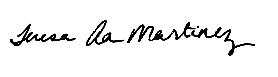 Teresa Aa Martinez